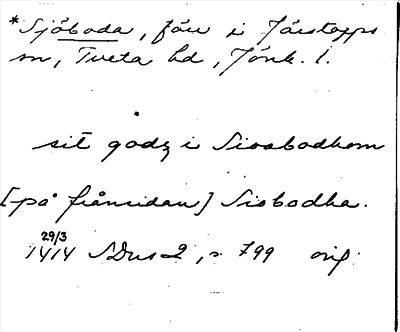 *Sjöboda, förr i Järstorps
sn, Tveta hd, Jönk. l.
sit godz i Sioabodhom
[på frånsidan] Siobodha.
29/3
1414 SDns 2, s. 799 orig.